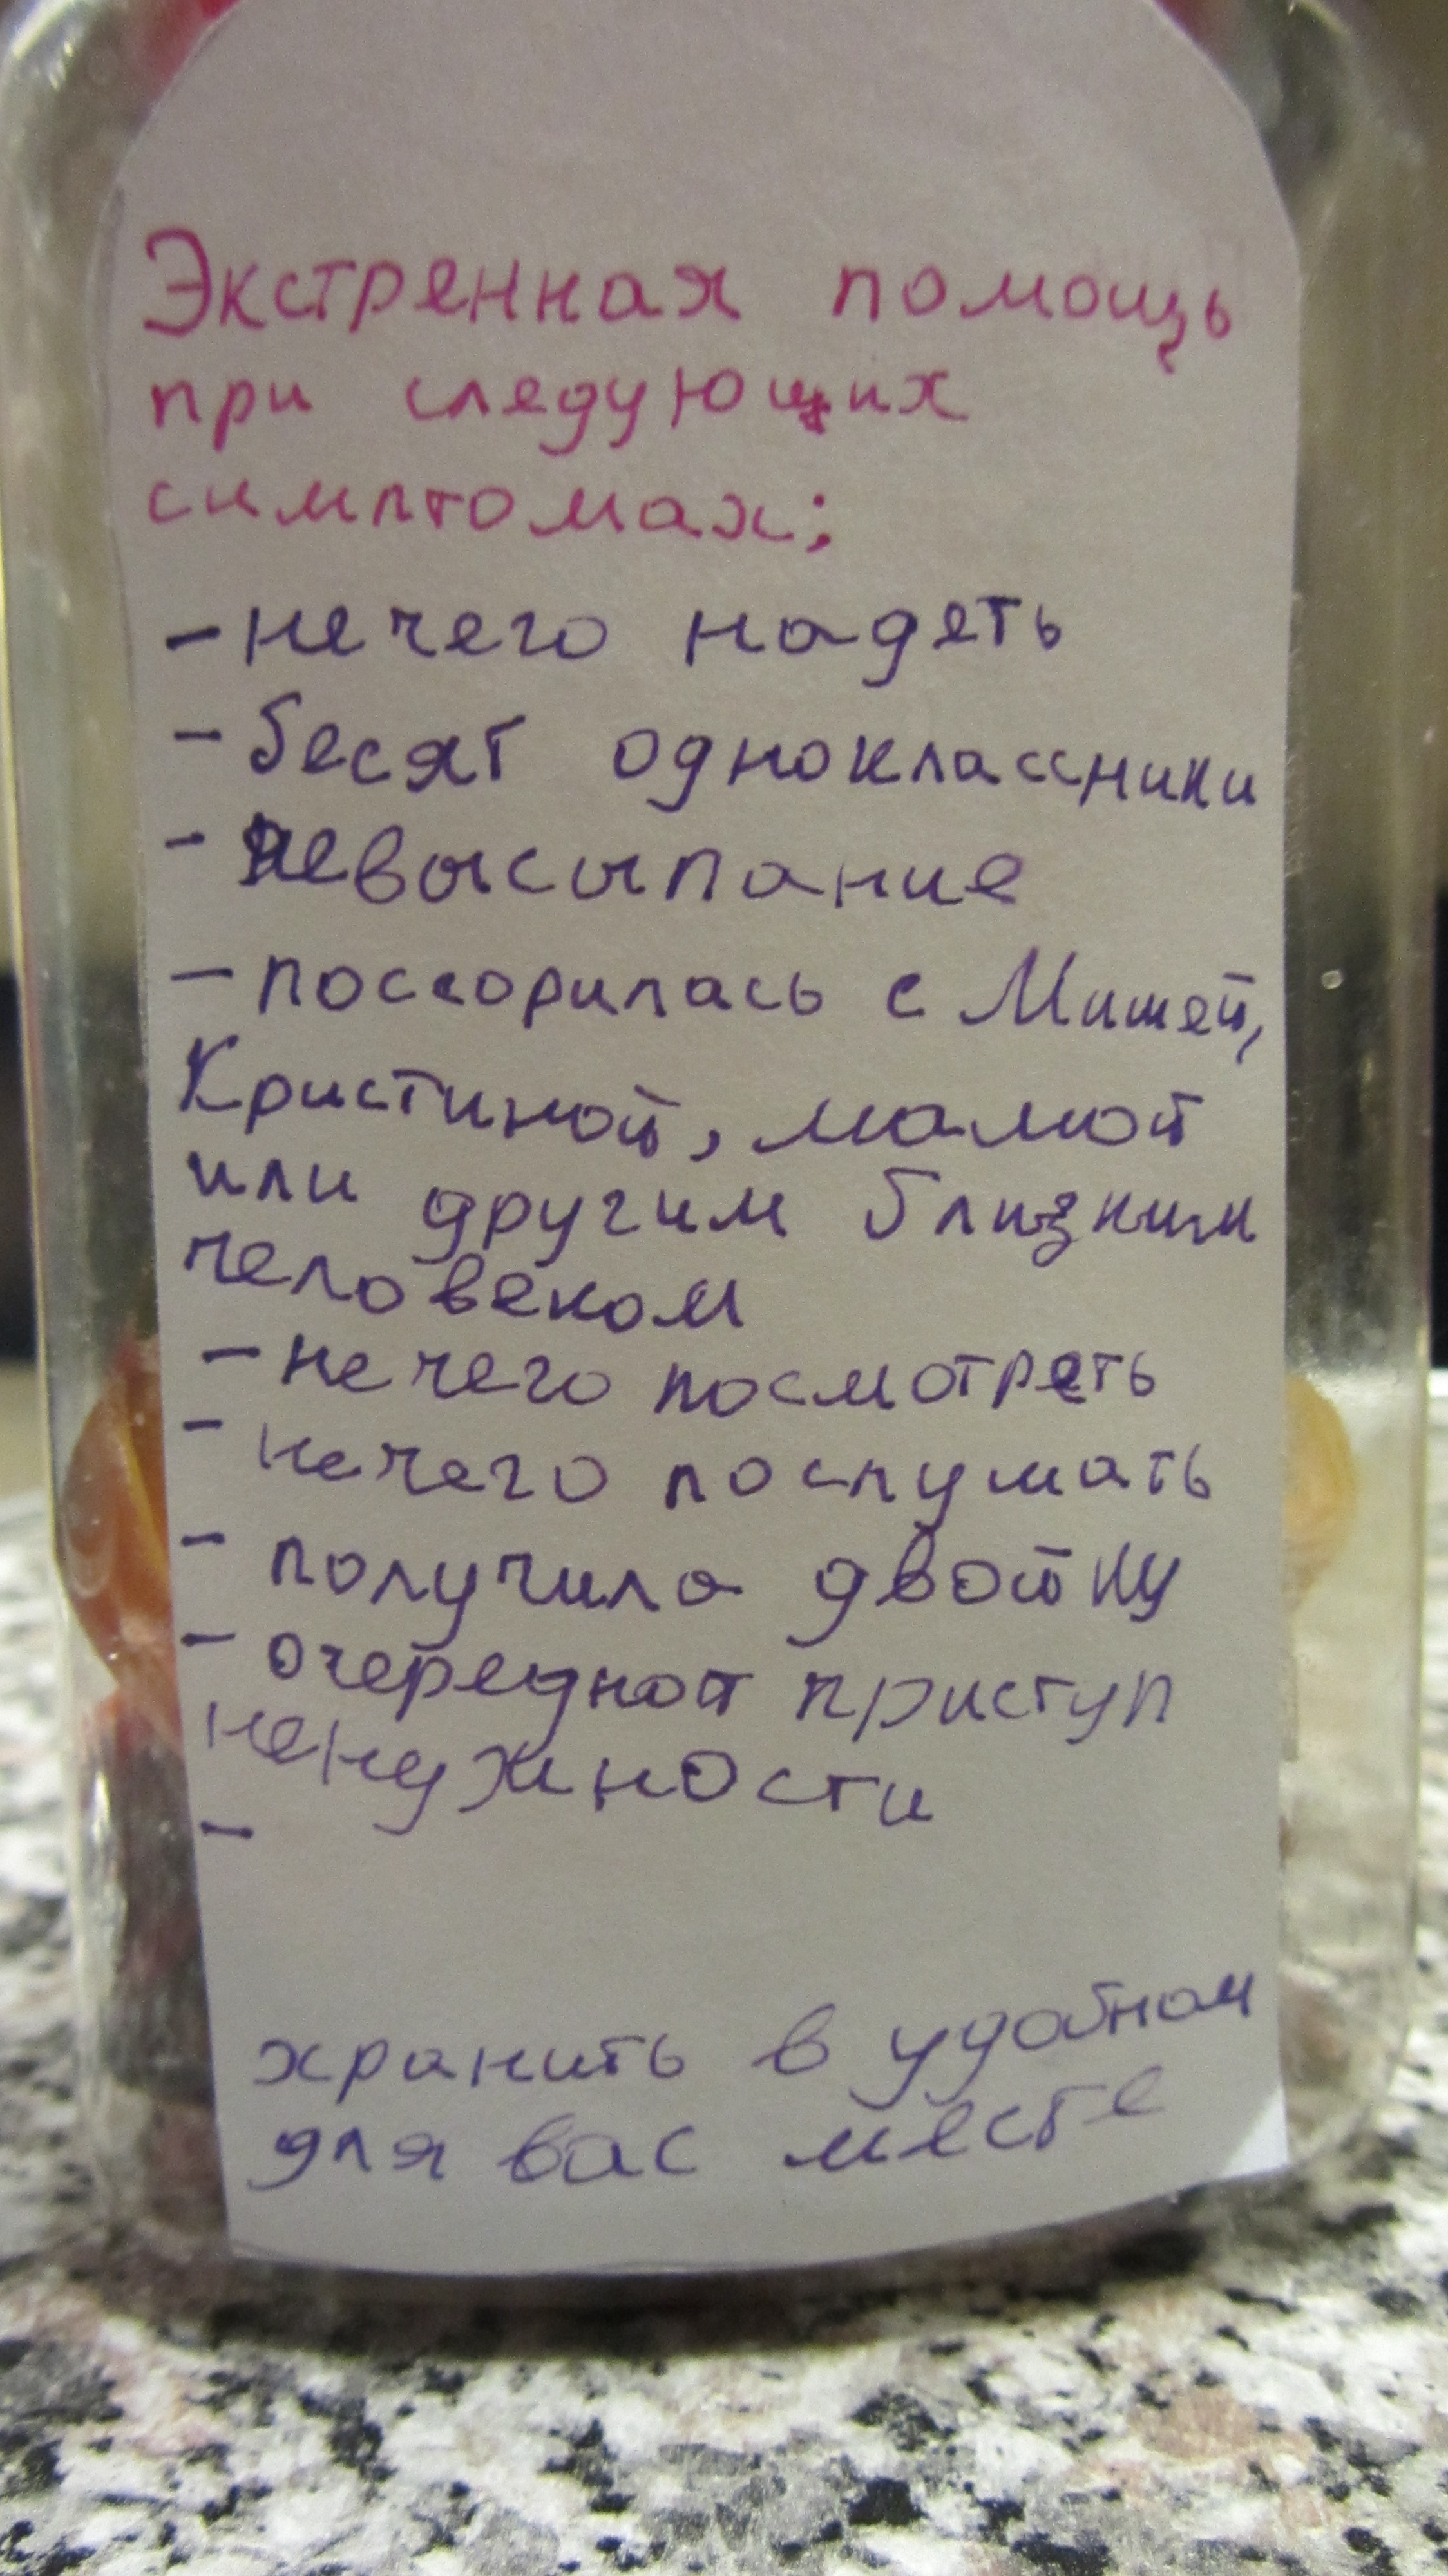 Экстренная помощь
при следующих
симптомах;
- нечего надеть
- бесят одноклассники
- невысыпание
- поссорилась с Мишей,
Кристиной, мамой
или другим близким
человеком
- нечего посмотреть
- нечего послушать
- получила двойку
- очередной приступ
ненужности
-
хранить в удобном
для вас месте